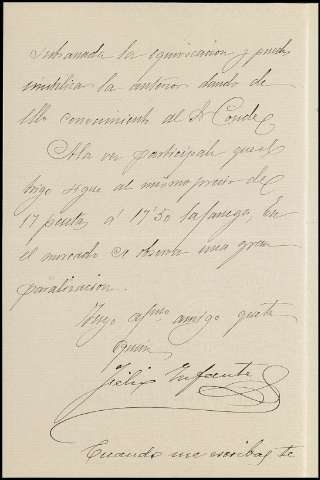 subsanada la equivocacion y puedes
inutilizar la anterior dando de
ello conocimiento al Sr Conde
A la vez participale que el
trigo sigue al mismo precio de
17 pesetas á 17'50 la fanega. En
el mercado se observa una gran
paralizacion.
Tuyo afmo amigo q
Félix Infante
Cuando me escribas te